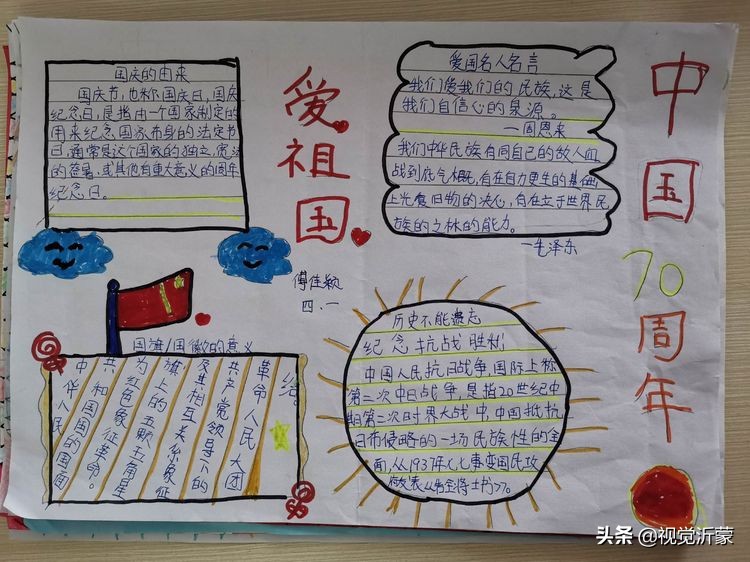 国庆的由来
国庆节,也称国庆日,国庆
纪念日,是指由一个国家制定的
用来纪念国家本身的法定节
日,通常是这个国家的独立,宪法
的签署,或其他有重大意义的周年
纪念日。
爱祖国
爱国名人名言
我们爱我们的民族,这是
我们自信心的泉源。
一周恩来
我们中华民族有同自己的敌人血
战到底气概,有在自力更生的基础
上光复旧物的决心,有在立于世界民
族的之林的能力。
一毛泽东
中国70周年
傅佳颖
四、一
国旗/国徽的意义
中华人民
共和国国的国面
为红色象征革命。
旗上的五颗五角星
及其相互关系象征
共产党领导下的
革命人民大团
结
历史不能遗忘
纪念抗战胜利
中国人民抗日战争,国际上称
第二次中日战争,是指20世纪中
期第二次时界大战中,中国抵抗
日布侵略的一场民族性的全
面,从1937年(七事变国民攻
头条@视觉沂蒙